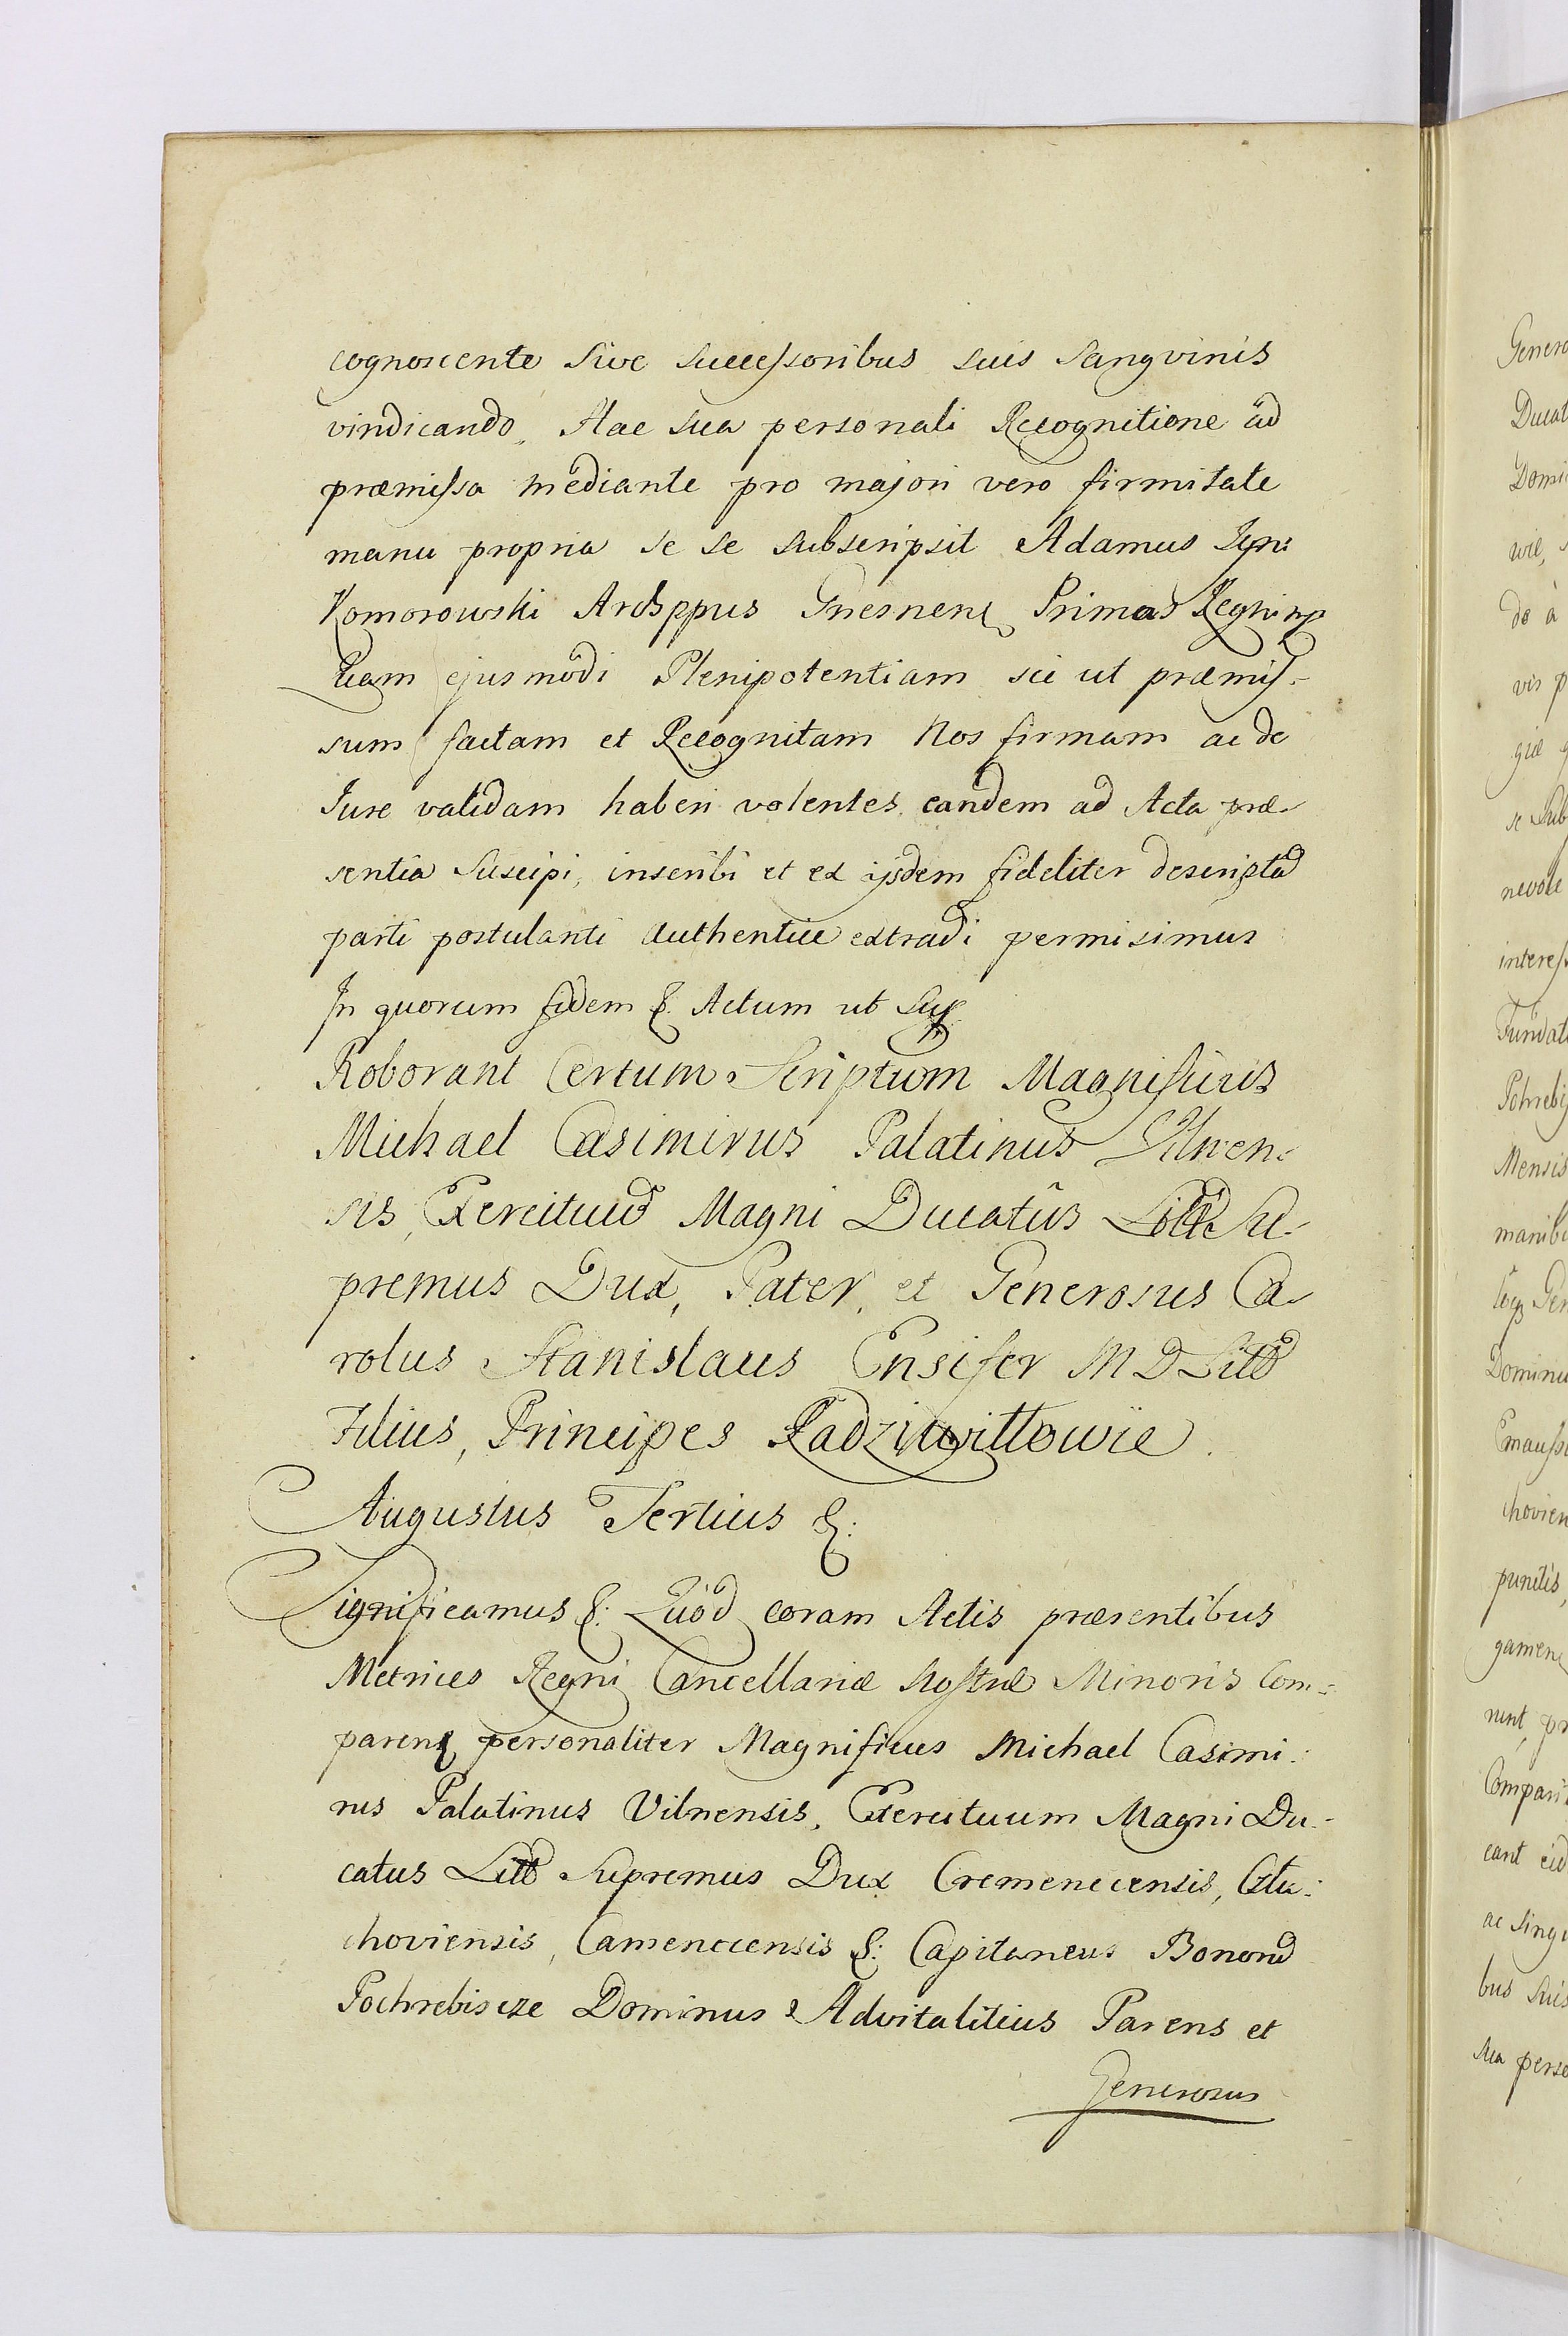 cognoscente sive successoribus suis sangvinis
vindicando. Hac sua personali Recognitione ad
præmissa mediante pro majori vero firmitate
manu propria se se subscripsit Adamus Igni
Komorowski Archppus Gnesnens Primas Regni mp
Quam ejusmodi Plenipotentiam sic ut præmis-
sum factam et Recognitam Nos firmam ac de
Jure validam haberi volentes eandem ad Acta præ-
sentia Suscipi, inscribi et ex ijsdem fideliter descriptã
parti postulanti authentice extradi permisimus
In quorum fidem &. Actum ut Sup.
Roborant Certum Scriptum Magnificus
Michael Casimirus Palatinus Vilnen-
sis, Exercituũ Magni Ducatûs Litt Su-
premus Dux, Pater, et Generosus Ca-
rolus Stanislaus Ensifer M D Litt
Filius, Principes Radziwiłłowie.
Augustus Tertius &:
Significamus &: Quòd coram Actis præsentibus
Metrices Regni Cancellariæ Nostræ Minoris Com-
parens personaliter Magnificus Michael Casimi-
rus Palatinus Vilnensis, Exercituum Magni Du-
catus Litt Supremus Dux Cremenecensis, Czlu-
choviensis, Camenecensis &: Capitaneus Bonorũ
Pochrebiscze Dominus Advitalitius Parens et
Generosus
Genero
Ducat
Domi
wie,
do à
vis p
giæ
se Sub
nevole
interess
Fundat
Pohrebi
Mensis
manib
Dominu
Emauss
chovien
punctis,
gamen
runt, pr
Compari
cant eid
ac Singu
bus suis
sua perso